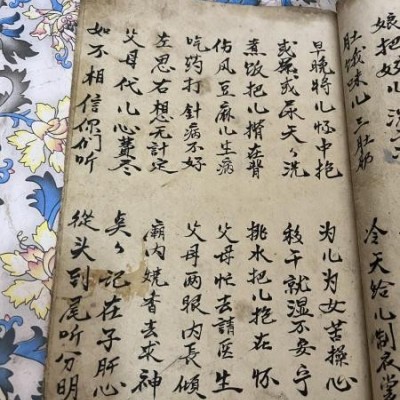 今天给儿制衣裳
早晚将儿怀中抱 为儿为女苦操心
或屎或尿天々洗 移干就湿不安宁
煮饭把儿揹在背 挑水把儿抱在怀
伤风豆麻儿生病 父母忙去請医生
吃药打針病不好 父母两眼内長傾
左思右想无計定 廟内燒香去求神
父母代儿心費尽 矣々记在子肝心
如不相信你们听 從头到尾听分明